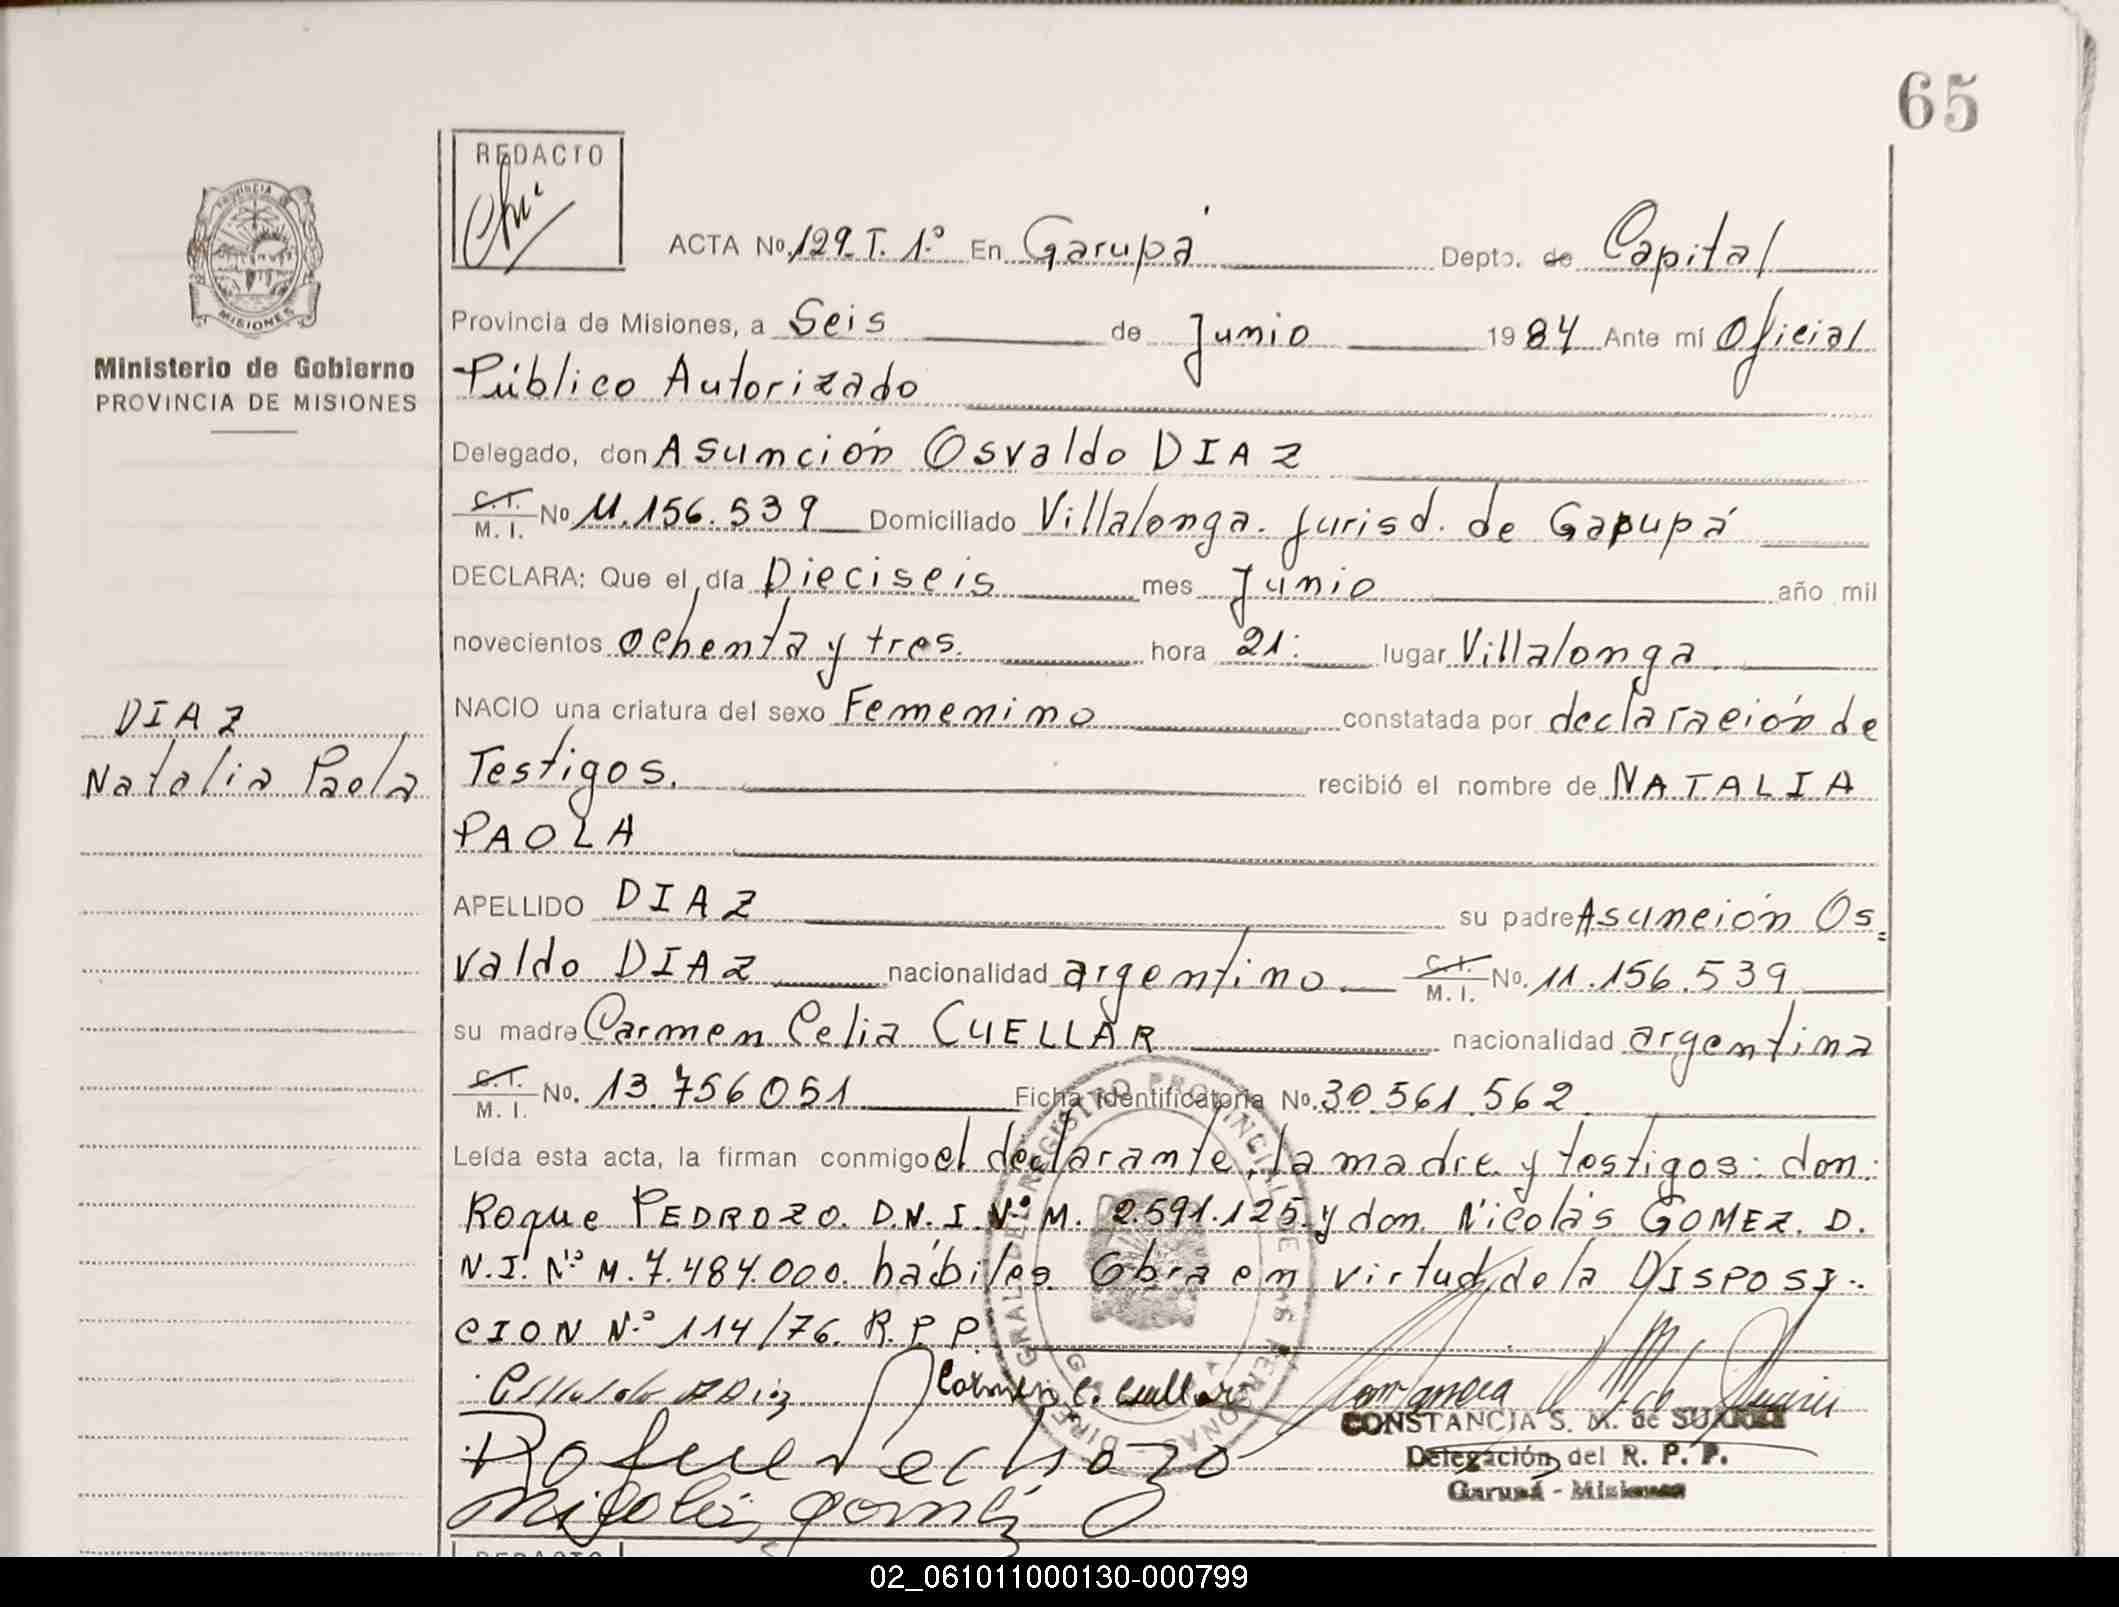 65
REDACTO
PROVINCIA
MISIONES
Ministerio de Gobierno
PROVINCIA DE MISIONES
ACTA No. 129. T. 1.º En Garupá Depto. de Capital
Provincia de Misiones, a Seis de Junio 1984 Ante mí Oficial
Público Autorizado
Delegado, don Asunción Osvaldo DIAZ
C.I. M. I. No 11.156.539 Domiciliado Villalonga. Jurisd. de Gapupá
DECLARA: Que el día Dieciseis mes Junio año mil
novecientos ochenta y tres. hora 21: lugar Villalonga.
NACIO una criatura del sexo Femenino constatada por declaración de
Testigos. recibió el nombre de NATALIA
PAOLA
DIAZ
Natalia Paola
APELLIDO DIAZ su padre Asunción Os=
valdo DIAZ nacionalidad argentino. C.I. M. I. No. 11.156.539
su madre Carmen Celia CUELLAR nacionalidad argentina
C.I. M. I. No. 13.756051 Ficha Identificatoria No. 30.561.562
Leída esta acta, la firman conmigo el declarante, la madre y testigos: don:
Roque PEDROZO. D.N.I. Nº M. 2.591.125. y don. Nicolás GOMEZ. D.
N.I. Nº M. 7.484.000. hábiles. Obra en virtud de la DISPOSI-
CION N.º 114/76. R.P.P.
Carmen C. Cuellar
Roque Pedrozo
Nicolás Gomez
DIREC. GRAL. DEL REGISTRO PROVINCIAL DE LAS PERSONAS
CONSTANCIA S. M. de
Delegación del R. P. P.
Garupá - Misiones
REDACTO
02_061011000130-000799